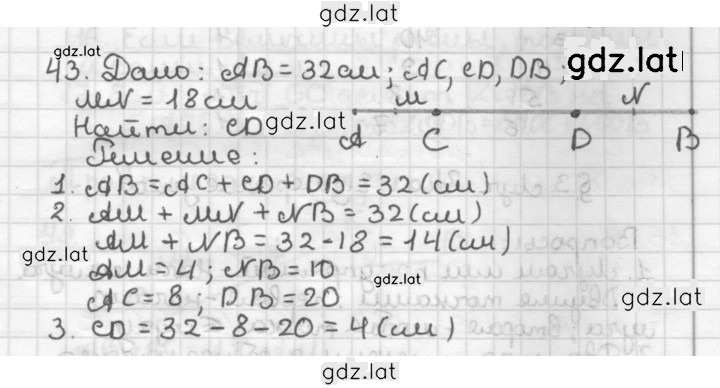 gdz.lat
gdz.lat
43. Дано: AB = 32 см; AC, CD, DB, gdz.lat
MN = 18 см
M N
Найти: CD gdz.lat
A C D B
Решение:
1. AB = AC + CD + DB = 32 (см)
2. AM + MN + NB = 32 (см)
AM + NB = 32 - 18 = 14 (см)
gdz.lat
AM = 4; NB = 10
gdz.lat
AC = 8, DB = 20
gdz.lat
3. CD = 32 - 8 - 20 = 4 (см)
gdz.lat